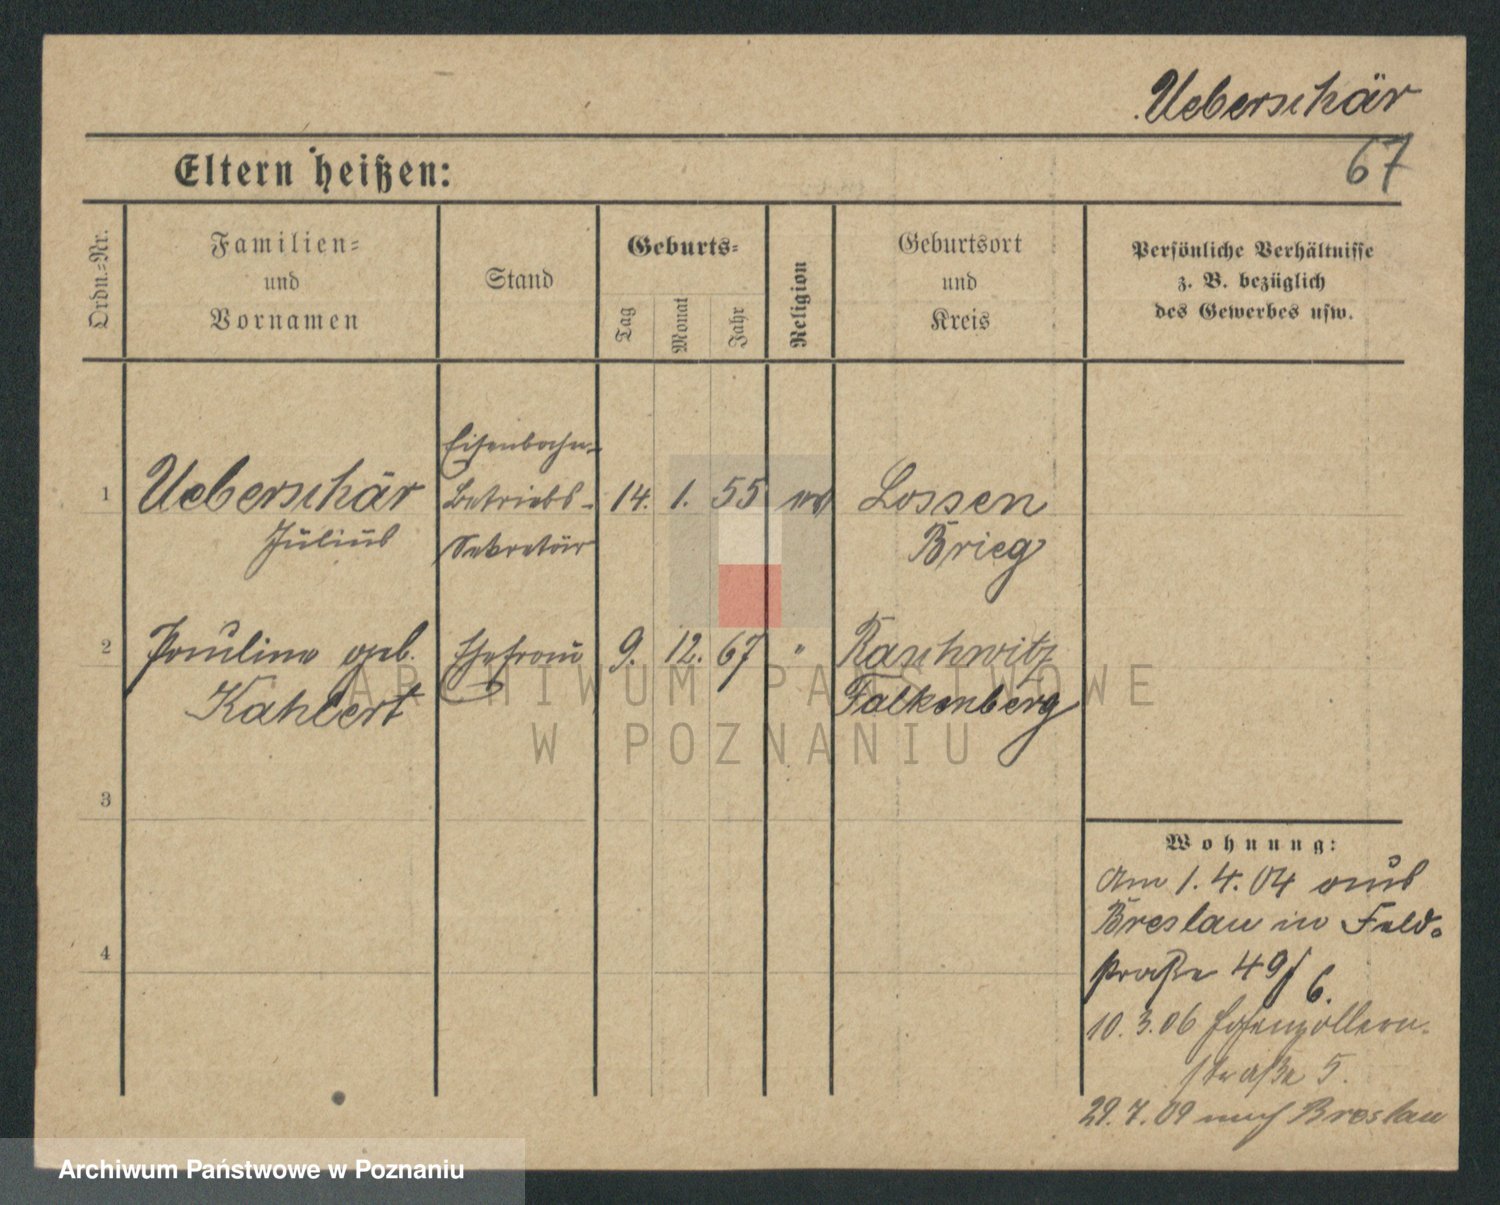 Ueberschär
67
Eltern heißen:
Ordn.-Nr.
Familien-
und
Vornamen
Stand
Geburts-
Tag
Monat
Jahr
Religion
Geburtsort
und
Kreis
Persönliche Verhältnisse
z. B. bezüglich
des Gewerbes usw.
1 Ueberschär
Julius
Eisenbahn-
Betriebs-
Sekretär
14. 1. 55 ev
Lossen
Brieg
2 Pauline geb.
Kahlert
Ehefrau
9. 12. 67 "
Raschwitz
Falkenberg
3
4
Wohnung:
Am 1.4.04 aus
Breslau in Feld-
straße 49/6.
10.3.06 Hohenzollern-
straße 5.
29.7.09 nach Breslau
ARCHIWUM PAŃSTWOWE
W POZNANIU
Archiwum Państwowe w Poznaniu